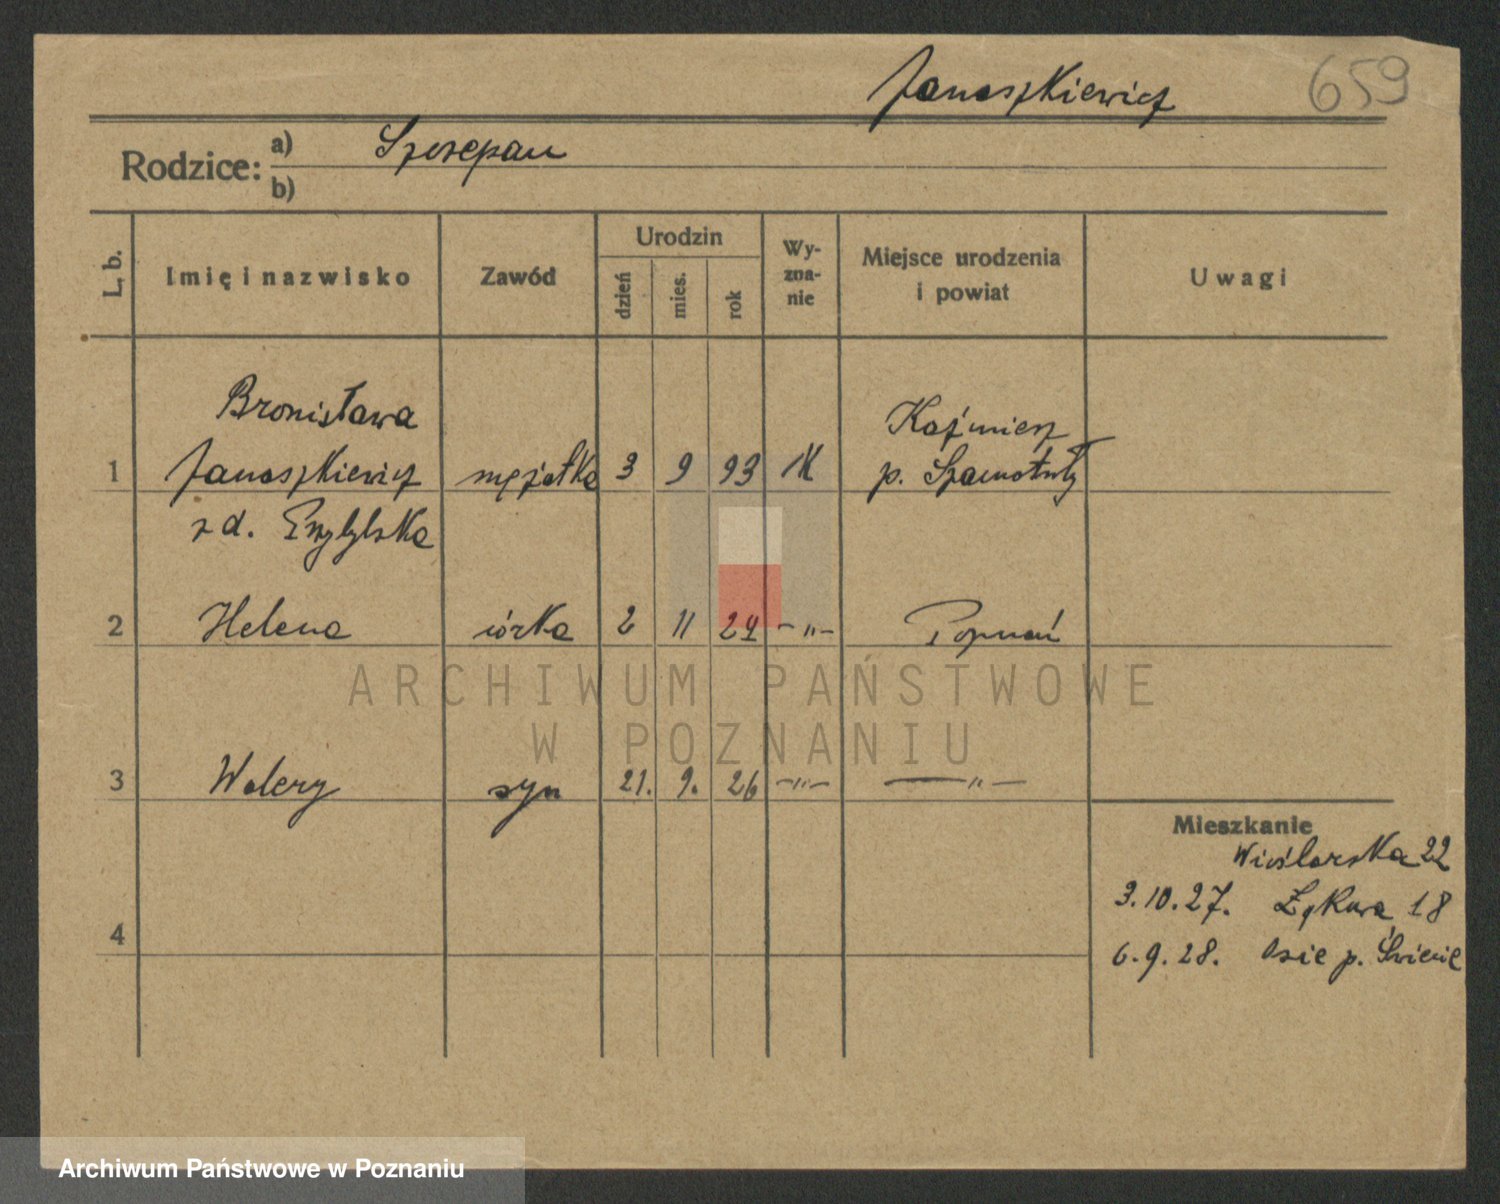 Janaszkiewicz 659
Rodzice: a) Szczepan
b)
L. b. Imię i nazwisko Zawód Urodzin dzień mies. rok Wy-zna-nie Miejsce urodzenia i powiat Uwagi
Bronisława Kaźmierz
1 Janaszkiewicz mężatka 3 9 93 rk p. Szamotuły
z d.
2 Helena córka 2 11 24 -"- Poznań
ARCHIWUM PAŃSTWOWE
W POZNANIU
3 Walery syn 21. 9. 26 -"- -"-
Mieszkanie
Wioślarska 22
3.10.27. Łąkowa 18
4
6.9.28. Osie p. Świecie
Archiwum Państwowe w Poznaniu